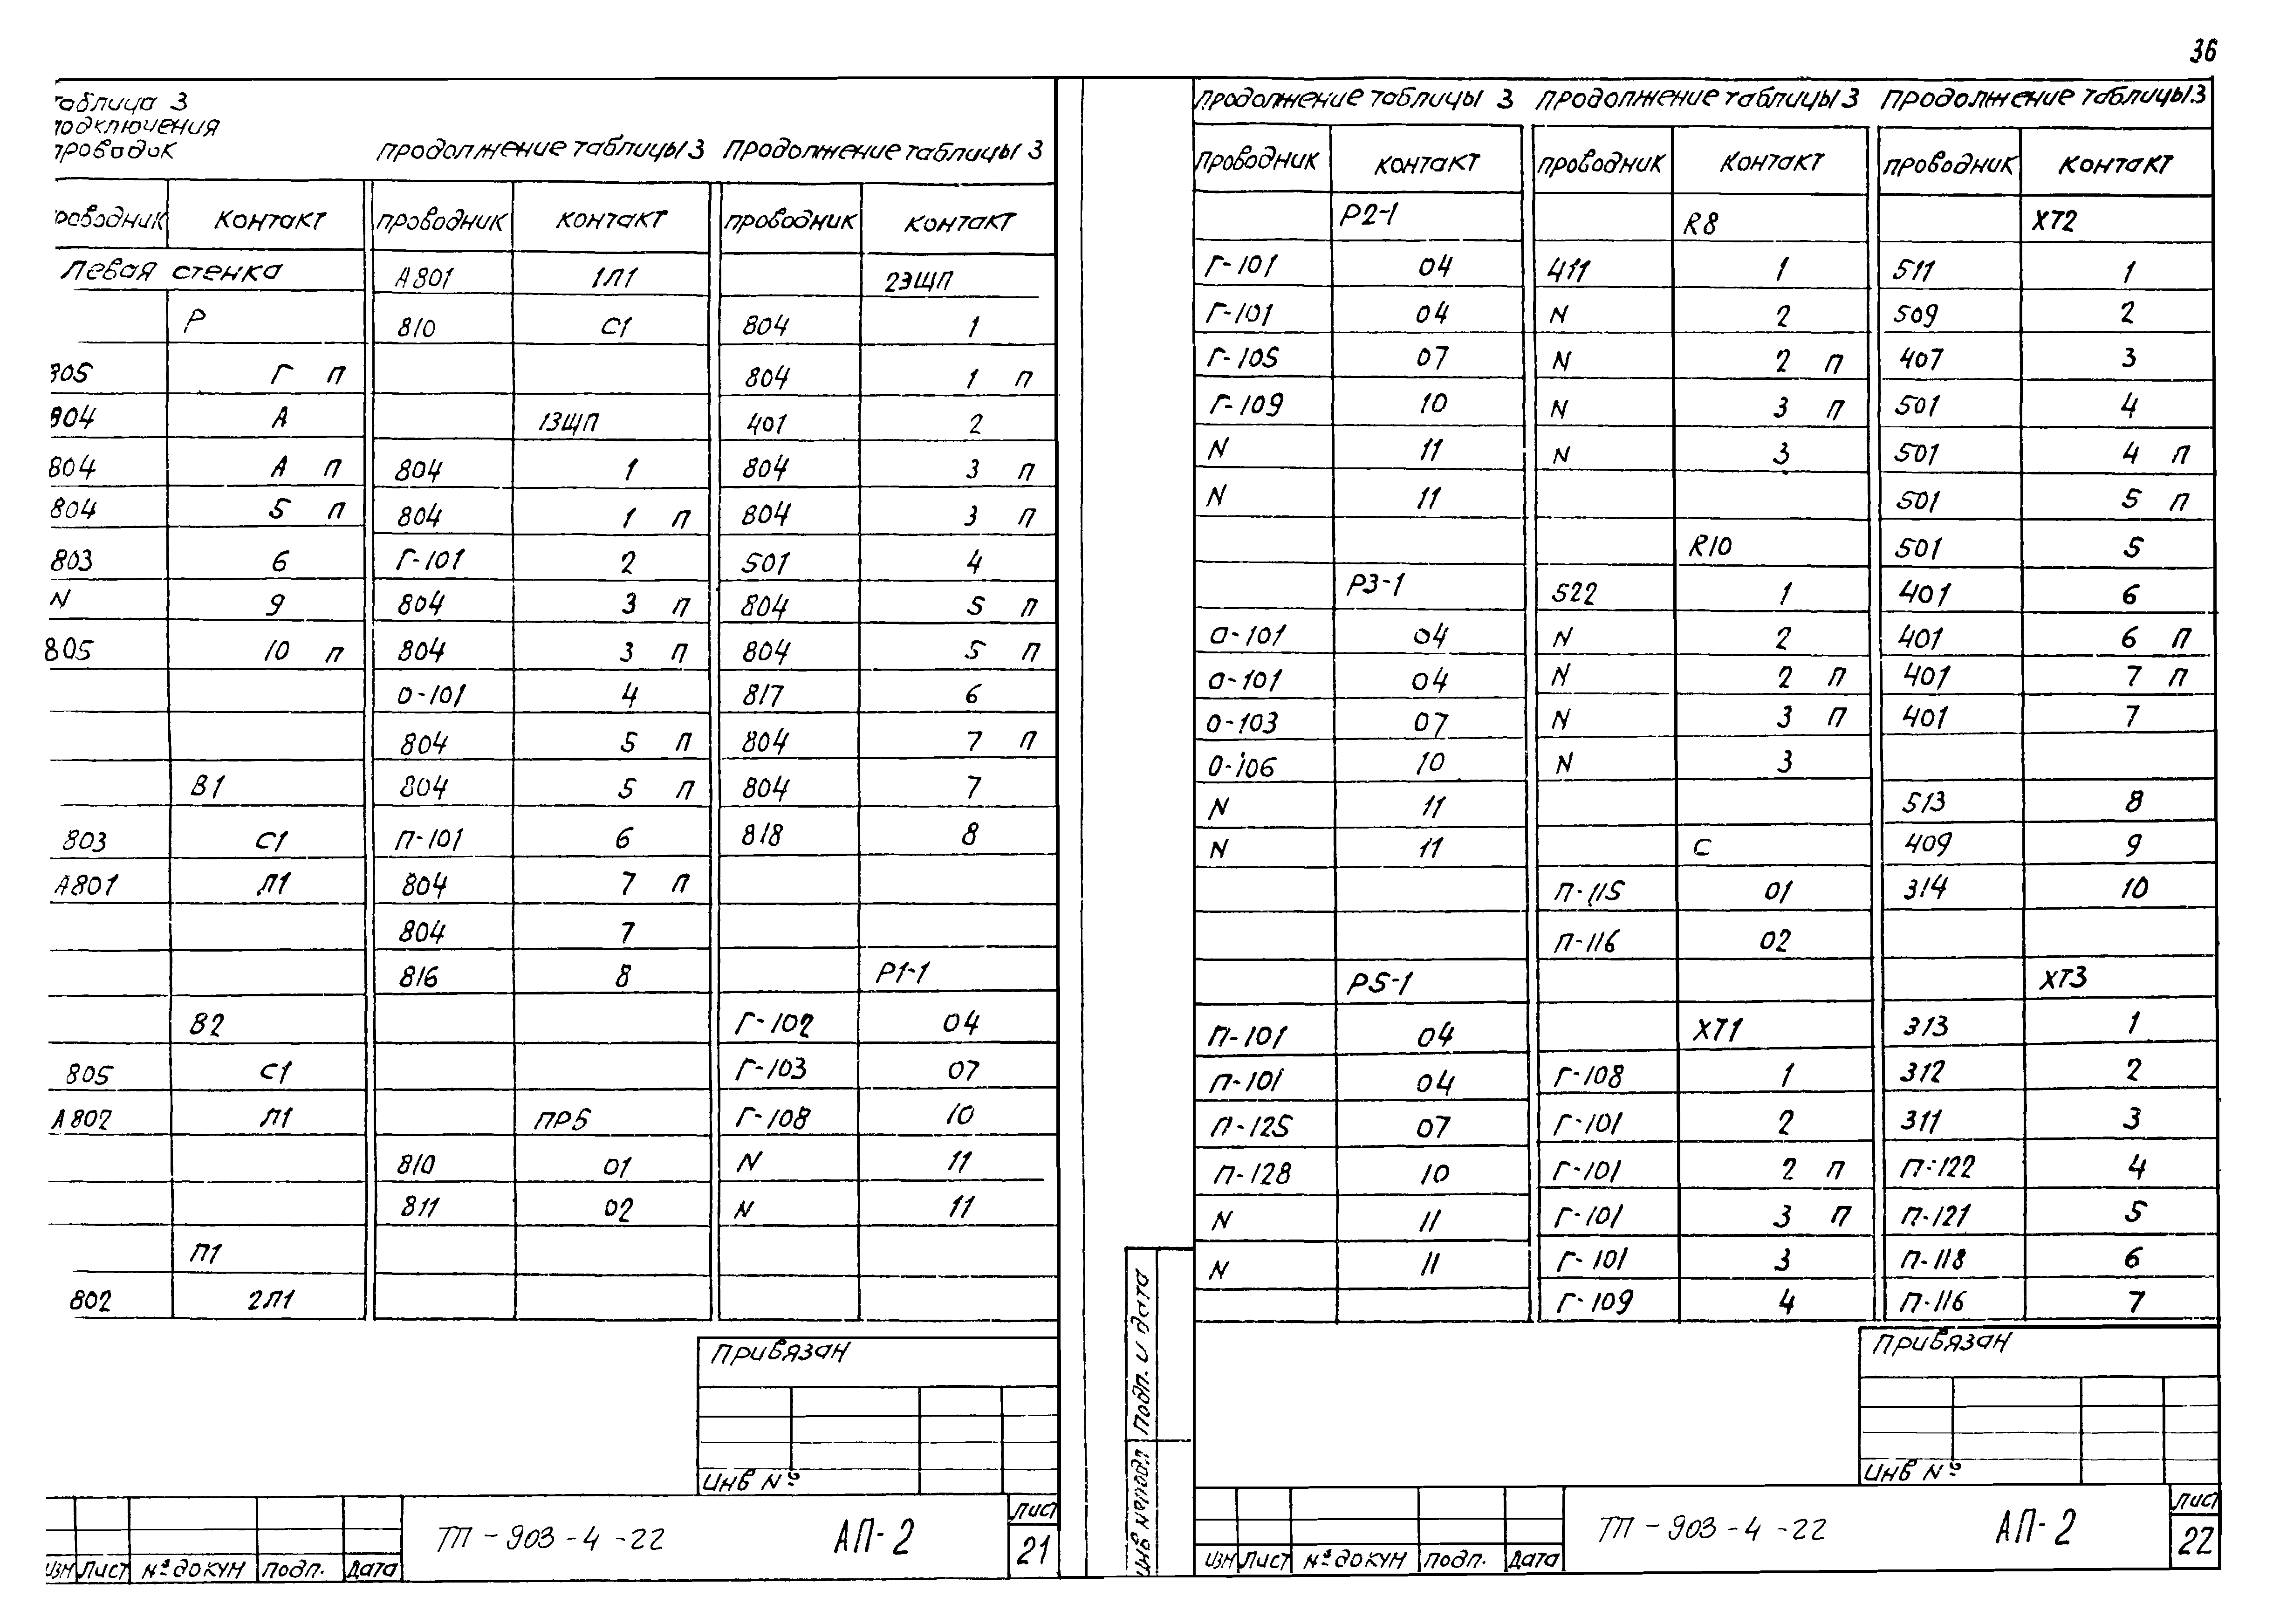 36
таблица 3
подключения
проводок
продолжение таблицы 3
проводник контакт
Левая стенка
Р
805 Г П
804 А
804 А П
804 5 П
803 6
N 9
805 10 П
В1
803 С1
А801 Л1
В2
805 С1
А802 Л1
П1
802 2Л1
проводник контакт
А801 1Л1
810 С1
1ЭЩП
804 1
804 1 П
Г-101 2
804 3 П
804 3 П
О-101 4
804 5 П
804 5 П
П-101 6
804 7 П
804 7
816 8
ПР5
810 01
811 02
Продолжение таблицы 3
проводник контакт
2ЭЩП
804 1
804 1 П
401 2
804 3 П
804 3 П
501 4
804 5 П
804 5 П
817 6
804 7 П
804 7
818 8
Р1-1
Г-102 04
Г-103 07
Г-108 10
N 11
N 11
Привязан
Инв №
Изм Лист № докум подп. Дата
ТП-903-4-22
АП-2
Лист
21
Продолжение таблицы 3
проводник контакт
Р2-1
Г-101 04
Г-101 04
Г-105 07
Г-109 10
N 11
N 11
Р3-1
О-101 04
О-101 04
О-103 07
О-106 10
N 11
N 11
Р5-1
П-101 04
П-101 04
П-125 07
П-128 10
N 11
N 11
Продолжение таблицы 3
проводник контакт
R8
411 1
N 2
N 2 П
N 3 П
N 3
R10
522 1
N 2
N 2 П
N 3 П
N 3
С
П-115 01
П-116 02
ХТ1
Г-108 1
Г-101 2
Г-101 2 П
Г-101 3 П
Г-101 3
Г-109 4
Продолжение таблицы 3
проводник контакт
ХТ2
511 1
509 2
407 3
501 4
501 4 П
501 5 П
501 5
401 6
401 6 П
401 7 П
401 7
513 8
409 9
314 10
ХТ3
313 1
312 2
311 3
П-122 4
П-121 5
П-118 6
П-116 7
Привязан
Инв №
Подп. и дата
Инв № подл
Изм Лист № докум подп. Дата
ТП-903-4-22
АП-2
Лист
22